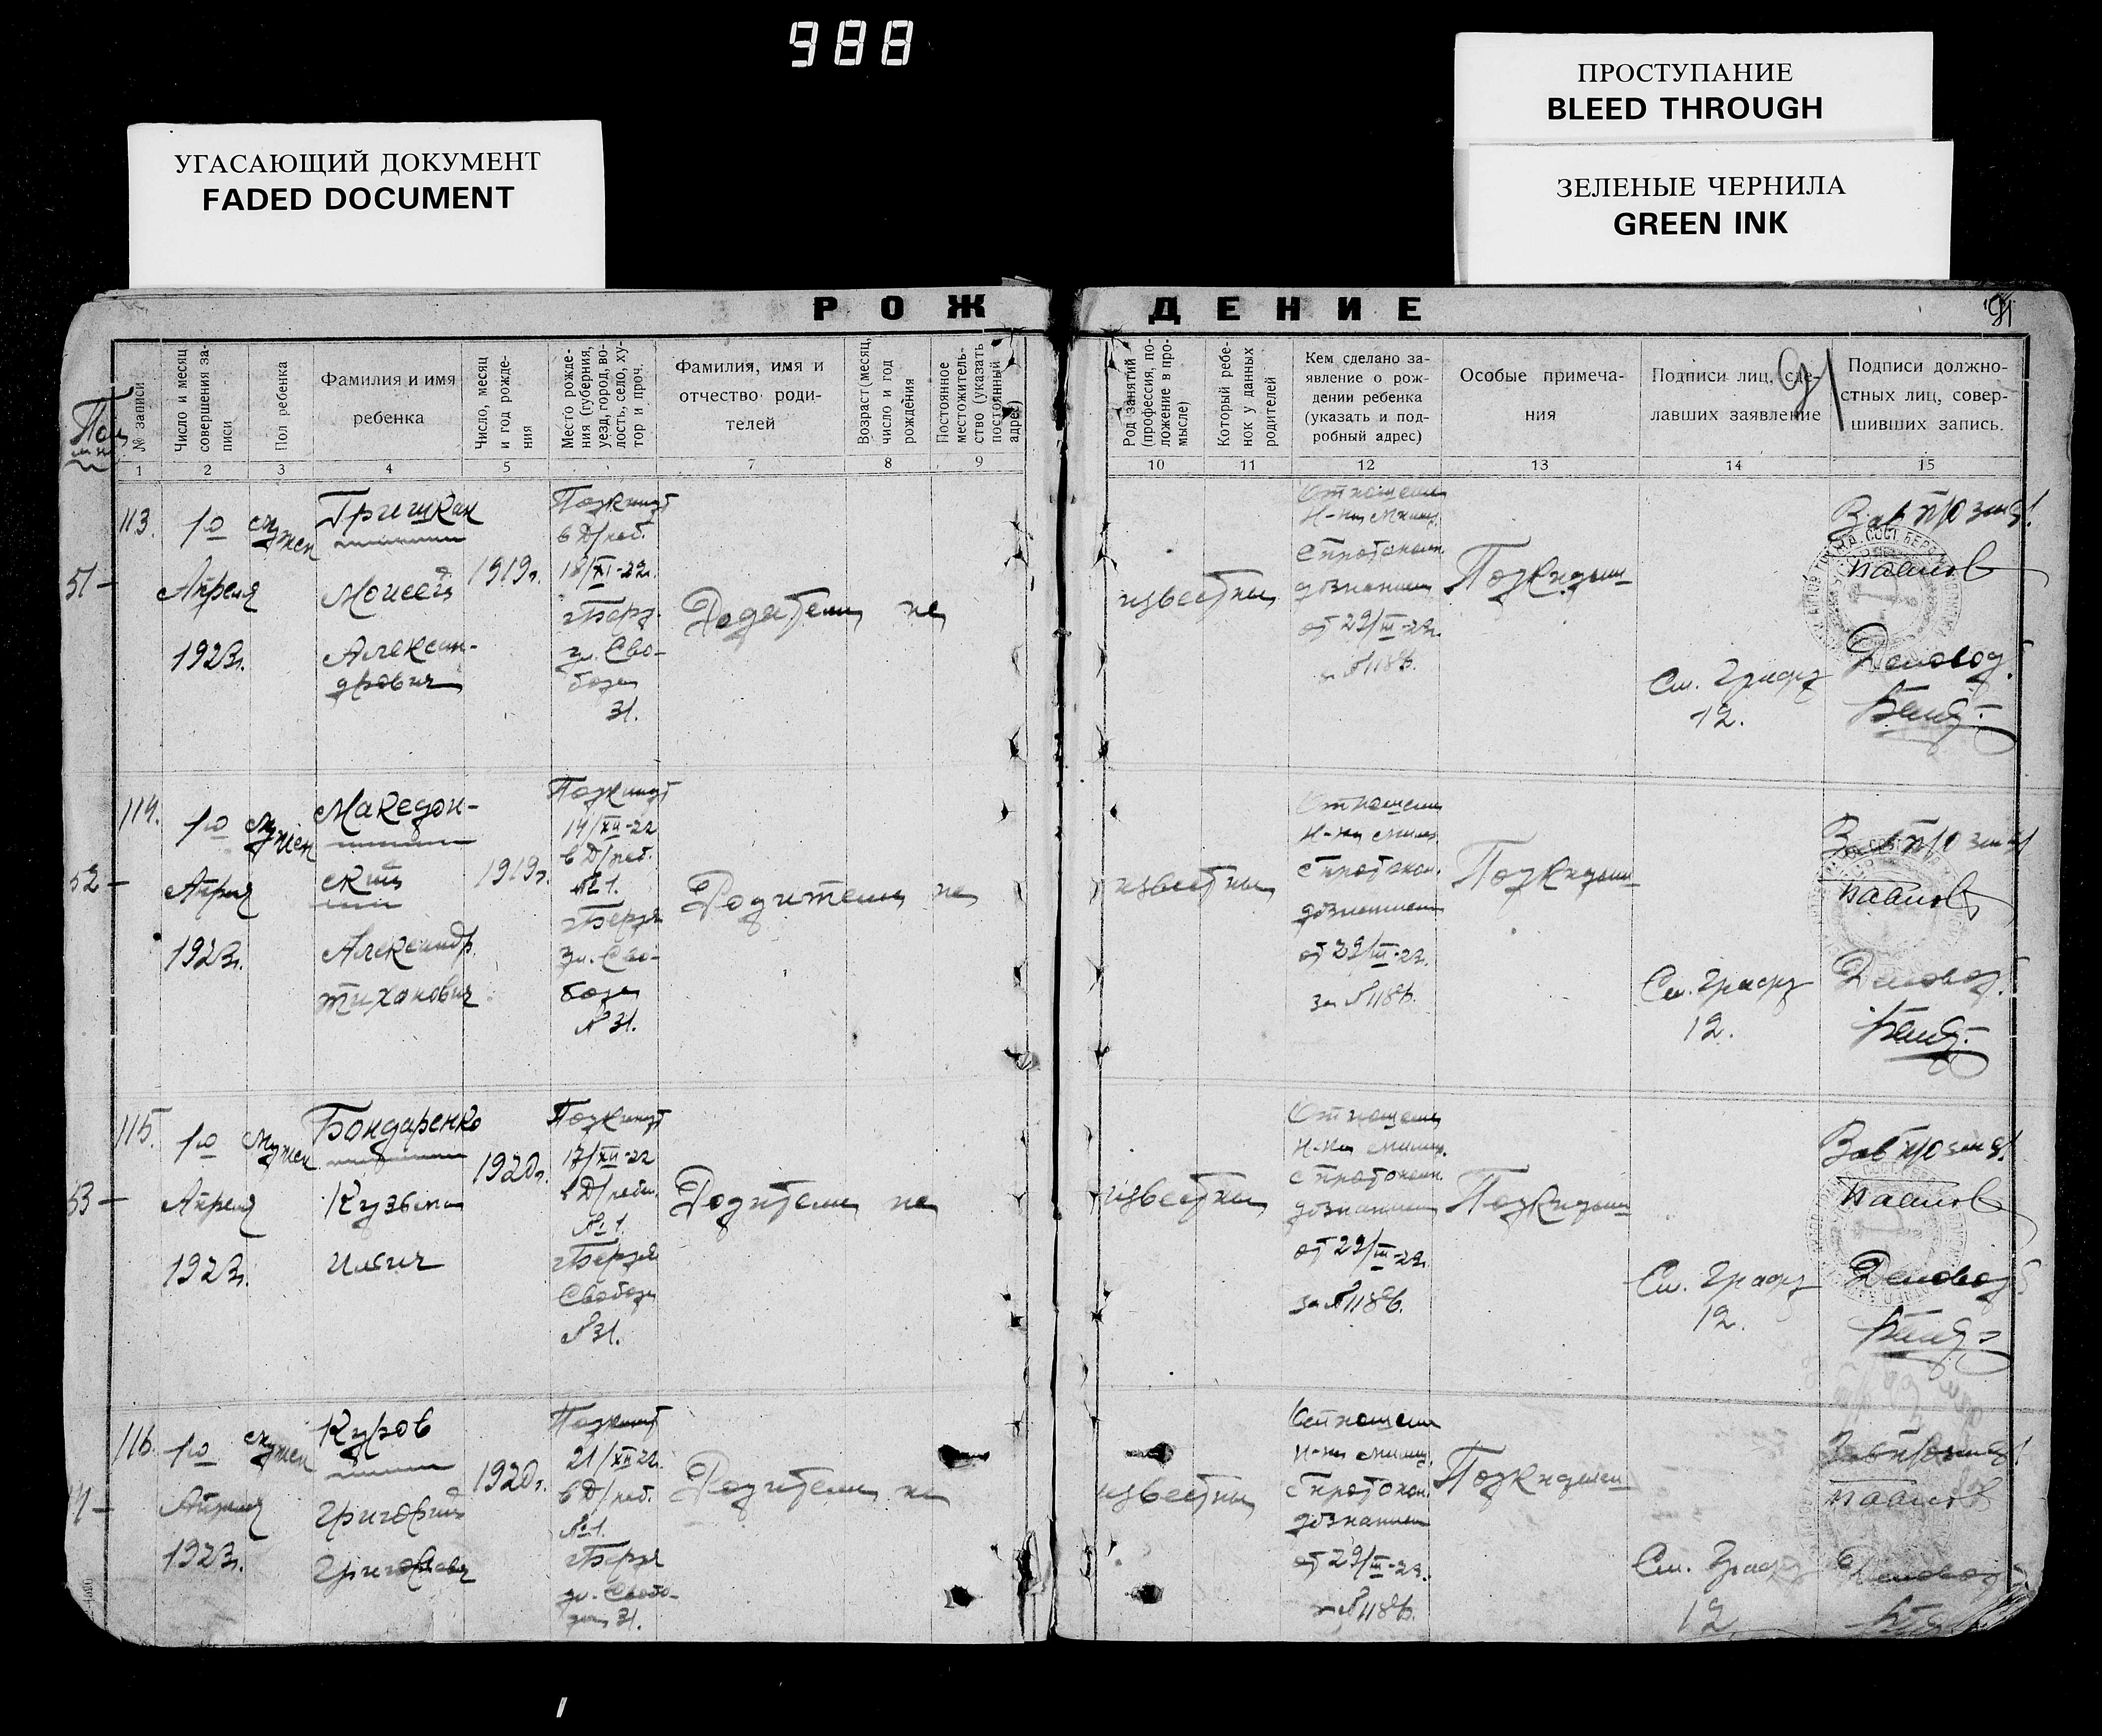 988
ПРОСТУПАНИЕ
BLEED THROUGH
ЗЕЛЕНЫЕ ЧЕРНИЛА
GREEN INK
УГАСАЮЩИЙ ДОКУМЕНТ
FADED DOCUMENT
РОЖДЕНИЕ
91
№ записи
Число и месяц совершения за-
писи
Пол ребенка
Фамилия и имя
ребенка
Число, месяц
и год рожде-
ния
Место рожде-
ния (губерния,
уезд, город, во-
лость, село, ху-
тор и проч.
Фамилия, имя и
отчество роди-
телей
Возраст (месяц,
число и год
рождения
Постоянное
местожитель-
ство (указать
постоянный
адрес)
Род занятий
(профессия, по-
ложение в про-
мысле)
Который ребе-
нок у данных
родителей
Кем сделано за-
явление о рож-
дении ребенка
(указать и под-
робный адрес)
Особые примеча-
ния
Подписи лиц, сде-
лавших заявление
Подписи должно-
стных лиц, совер-
шивших запись.
1 2 3 4 5 6 7 8 9 10 11 12 13 14 15
113.
51-
1го
Апреля
1923г.
мужск
Гришкан
Моисей
Алексан-
дрович
1919г.
Подкинут
в Д/реб.
18/XI-22г.
г. Берд.
ул. Сво-
боды
31.
Родители не
известны
Отношение
Н-ка
с протокол.
дознания
от 29/III-23г.
№1186.
Подкидыш
См. графу
12.
Делопод.
114.
52-
1го
Апреля
1923г.
мужск
Македон-
ский
Александр
Тихонович
1919г.
Подкинут
14/XII-22
в Д/реб.
№1.
г. Бердя
ул. Сво-
боды
№31.
Родители не
известны
Отношение
Н-ка
с протокол.
дознания
от 29/III-23.
за №1186.
Подкидыш
См. графу
12.
115.
53-
1го
Апреля
1923г.
мужск
Бондаренко
Кузьма
Ильич
1920г.
Подкинут
17/XII-22
в Д/реб.
№1
г. Бердя
Свободы
№31.
Родители не
известны
Отношение
Н-ка
с протокол.
дознания
от 29/III-23.
за №1186.
Подкидыш
См. графу
12.
116.
1го
Апреля
1923г.
мужск
Куров
Григорий
Григорьевич
1920г.
Подкинут
21/XII-22.
в Д/реб.
№1.
г. Бердя
ул. Свобо-
ды 31.
Родители не
известны
Отношение
Н-ка
с протокол.
дознания
от 29/III-23.
№1186.
Подкидыш
См. графу
12